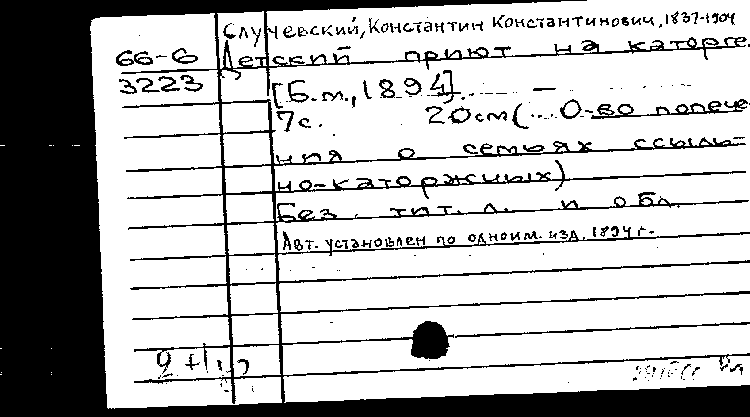 Случевский, Константин Константинович, 1837-1904
66-6 Детский приют на каторге.
3223 [Б.м., 1894]. —
7с. 20см (...О-во попече
ния о семьях ссыль-
но-каторжных)
Без тит. л. и обл.
Авт. установлен по одноим. изд. 1894 г.